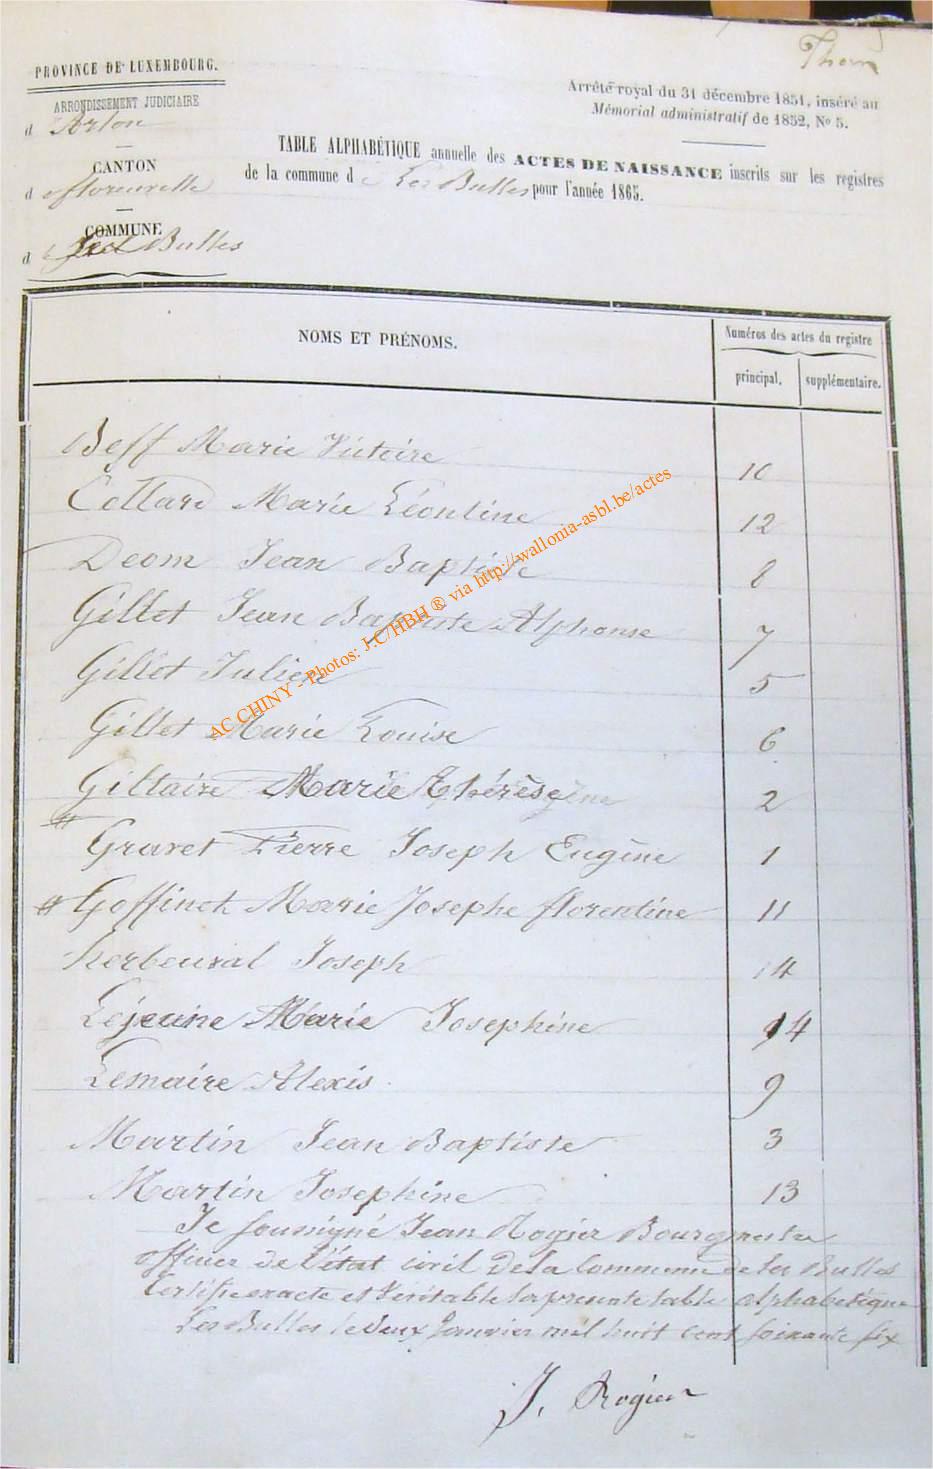 Thom
PROVINCE DE LUXEMBOURG.
ARRONDISSEMENT JUDICIAIRE
d'Arlon
CANTON
de florenville
COMMUNE
de Les Bulles
Arrêté royal du 31 décembre 1851, inséré au
Mémorial administratif de 1852, No 5.
TABLE ALPHABÉTIQUE annuelle des ACTES DE NAISSANCE inscrits sur les registres
de la commune de Les Bulles pour l'année 1865.
NOMS ET PRÉNOMS.
Numéros des actes du registre
principal. supplémentaire.
Beff Marie Victoire 10
Collard Marie Léontine 12
Deom Jean Baptiste 8
Gillet Jean Baptiste Alphonse 7
Gillet Julien 5
Gillet Marie Louise 6
Giltaire Marie Thérèse 2
Gravet Pierre Joseph Eugène 1
# Goffinet Marie Josephe florentine 11
herbeuval Joseph 14
Lejeune Marie Josephine 4
Lemaire Alexis 9
Martin Jean Baptiste 3
Martin Josephine 13
Je soussigné Jean Rogier Bourgmestre
officier de l'état civil de la Commune de les Bulles
Certifie exacte et Véritable la présente table alphabétique
Les Bulles le deux Janvier mil huit cent soixante six
J. Rogier
AC CHINY - Photos: J.C/HBH ® via http://wallonia-asbl.be/actes